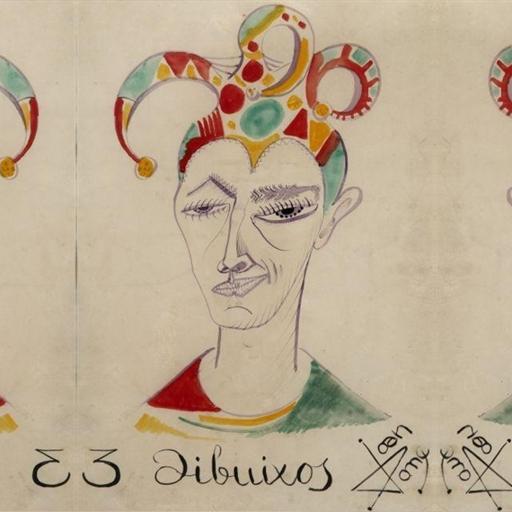 3 Dibuixos